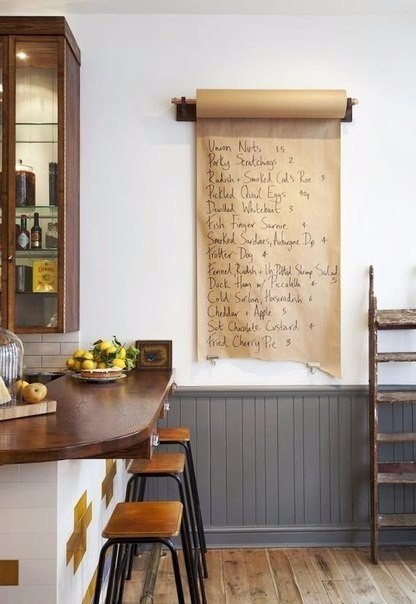 Union Nuts 1.5
Porky Scratchings 2
Radish + Smoked Cod's Roe 3
Pickled Quail Eggs 40p
Devilled Whitebait 3
Fish Finger Sarnie 4
Smoked Sardines, Aubergine Dip 4
Trotter Dog 4
Fennel, Radish + Potted Shrimp Salad 5
Duck Ham w/ Piccalilli 4
Cold Sirloin, Horseradish 6
Cheddar + Apple 5
Set Chocolate Custard 4
Fried Cherry Pie 3